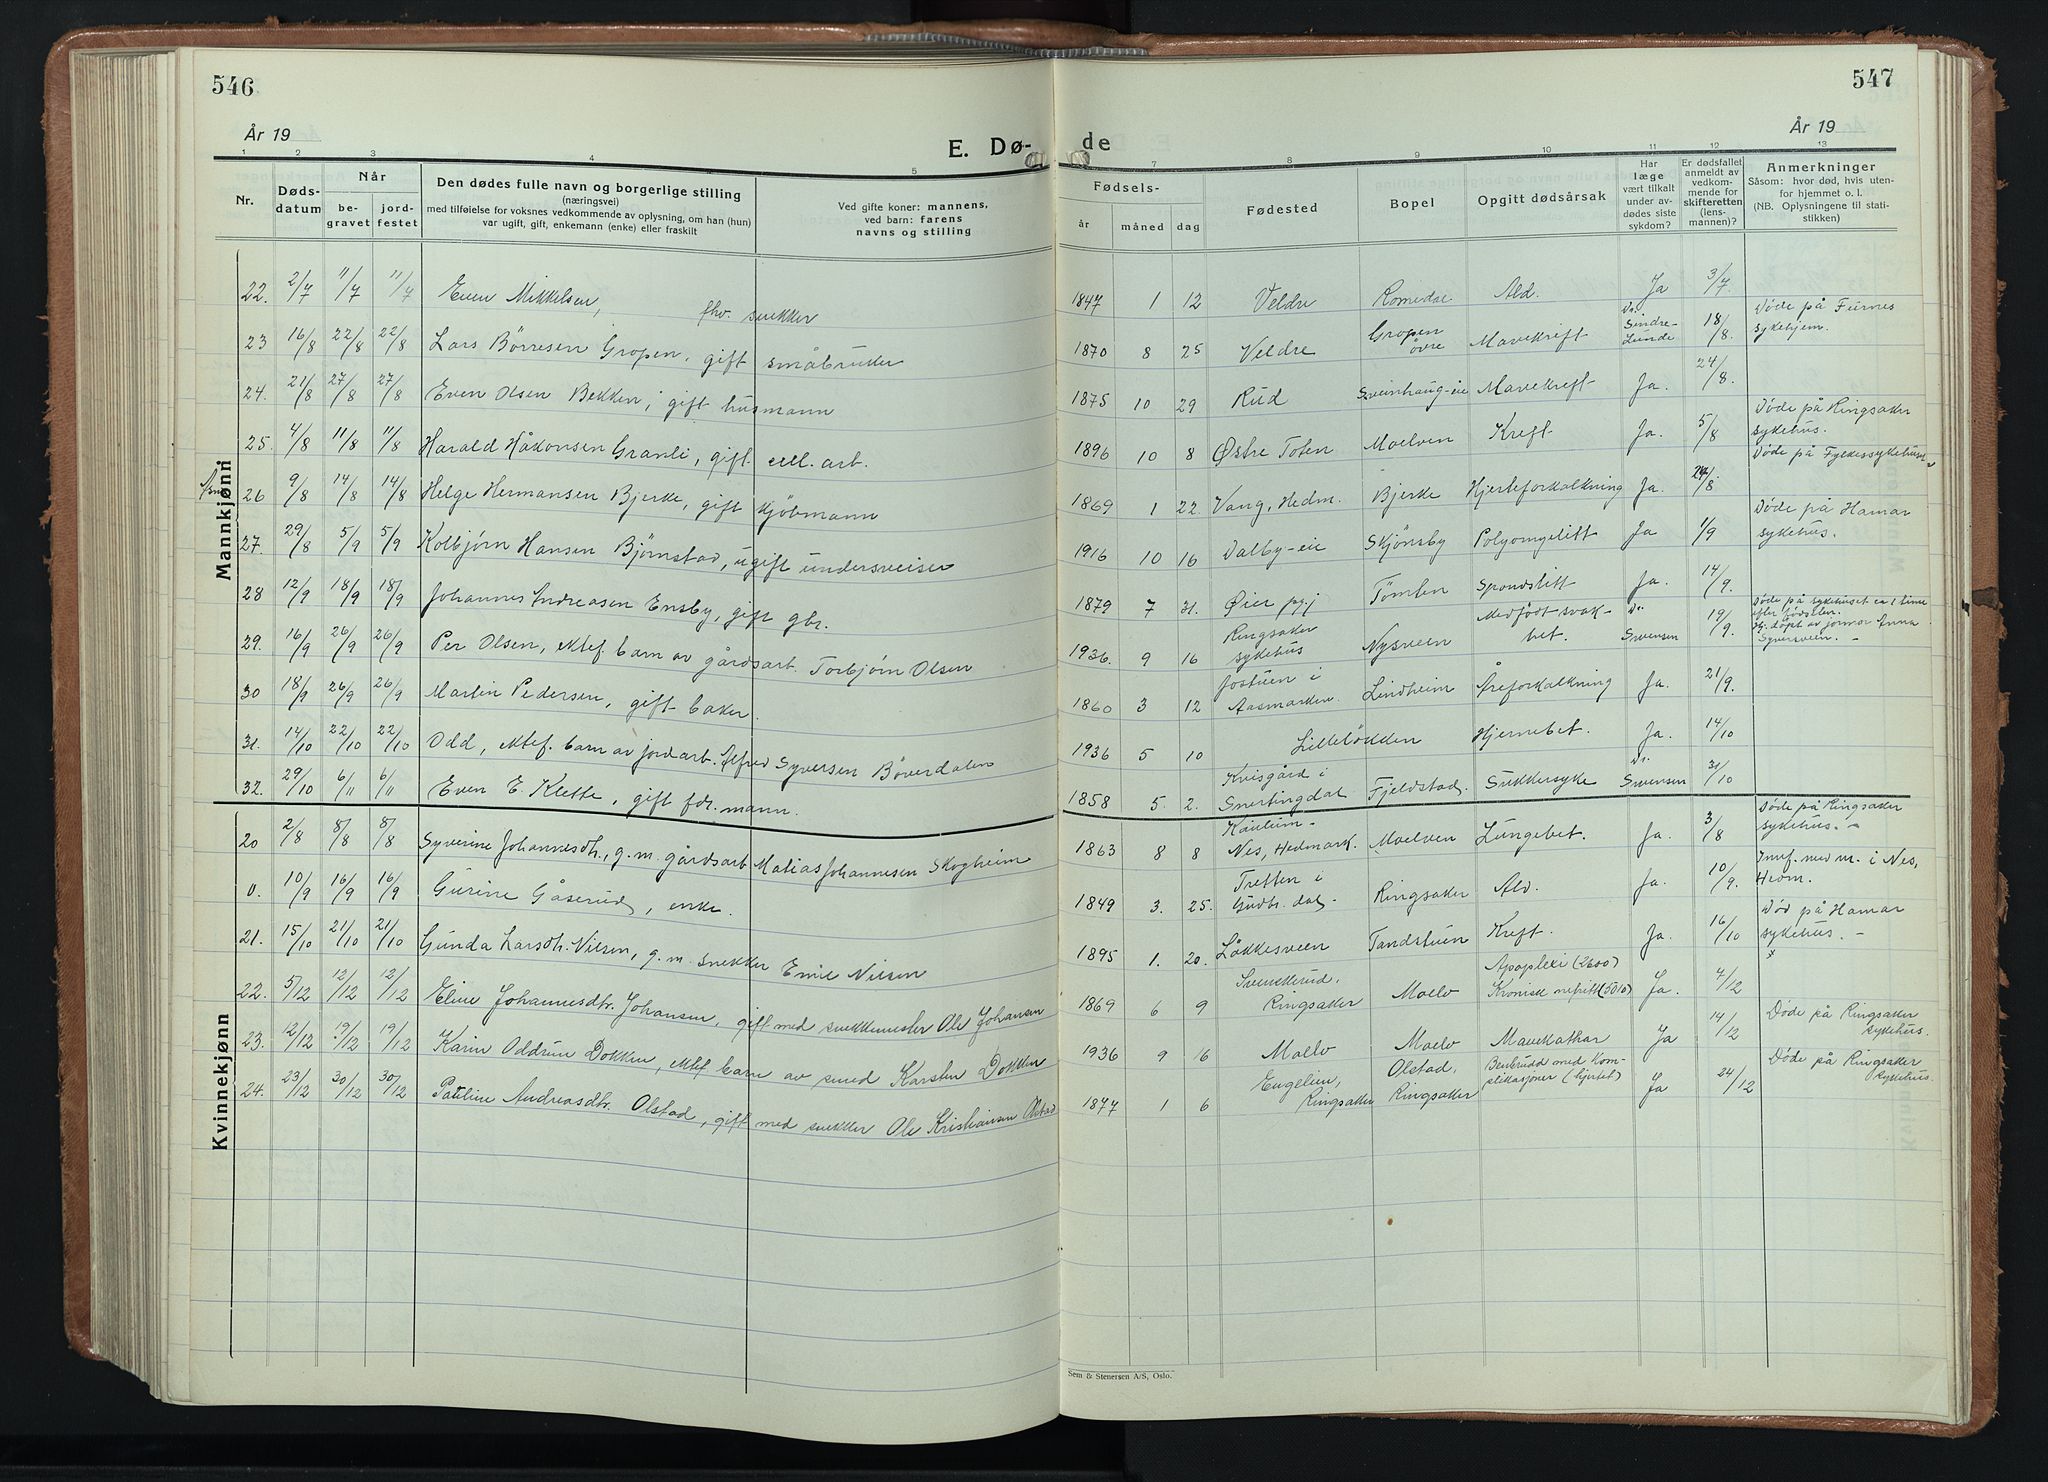 546
547
År 19
E. Dø-
de
År 19
1 2 3 4 5 7 8 9 10 11 12 13
Nr.
Døds-
datum
Når
be-
gravet
jord-
festet
Den dødes fulle navn og borgerlige stilling
(næringsvei)
med tilføielse for voksnes vedkommende av oplysning, om han (hun)
var ugift, gift, enkemann (enke) eller fraskilt
Ved gifte koner: mannens,
ved barn: farens
navns og stilling
Fødsels-
år
måned
dag
Fødested
Bopel
Opgitt dødsårsak
Har
læge
vært tilkalt
under av-
dødes siste
sykdom?
Er dødsfallet
anmeldt av
vedkom-
mende for
skifteretten
(lens-
mannen)?
Anmerkninger
Såsom: hvor død, hvis uten-
for hjemmet o. l.
(NB. Oplysningene til stati-
stikken)
Mannkjønn
22. 2/7 11/7 11/7 Even Mikkelsen, fhv. snekker 1847 1 12 Veldre Romedre Ald. Ja 3/7
23 16/8 22/8 22/8 Lars Børresen Gropen, gift småbruker 1870 8 25 Veldre Gropen øvre Mavekreft Dr. Sindre-Lunde 18/8. Døde på Furnes sykehjem.
24. 21/8 27/8 27/8 Even Olsen Bekken, gift husmann 1875 10 29 Rud Sveinhaug-eie Mavekreft Ja. 24/8.
25. 4/8 11/8 11/8 Harald Håkonsen Granli, gift cell. arb. 1896 10 8 Østre Toten Moelven Kreft Ja. 5/8 Døde på Ringsaker sykehus.
26 9/8 14/8 14/8 Helge Hermansen Bjerke, gift kjøbmann 1869 1 22 Vang, Hedm. Bjerke Hjerteforkalkning Ja. 24/8. Døde på Fylkessykehuset
27. 29/8 5/9 5/9 Kolbjørn Hansen Bjørnstad, ugift undersveiser 1916 10 16 Dalby-eie Skjønsby Polyomyelitt Ja 1/9 Døde på Hamar sykehus.
28 12/9 18/9 18/9 Johannes Andreasen Ensby, gift gbr. 1879 7 31. Øier pgj Tømten Spondslitt Ja. 14/9.
29. 16/9 26/9 26/9 Per Olsen, ektef. barn av gårdsarb. Torbjørn Olsen 1936. 9 16 Ringsaker sykehus Nysveen Medfødt svak-het. Dr. Svensen 19/9. Døde på sykehuset ca 1 time efter fødselen. Hj. døpt av jormor Anna Syversveen. -
30 18/9 26/9 26/9 Martin Pedersen, gift baker. 1860 3 12 Jostuen i Aasmarken Lindheim Åreforkalkning Ja. 21/9.
31. 14/10 22/10 22/10 Odd, ektef. barn av jordarb. Alfred Syversen Bøverdalen 1936 5 10 Lilleløkken Hjernebet. Ja. 14/10
32. 29/10 6/11 6/11 Even E. Klette, gift fdr. mann. 1858 5. 2. Kvisgård i Snertingdal Fjeldstad. Sukkersyke Dr. Svensen 31/10
Kvinnekjønn
20 2/8 8/8 8/8 Syverine Johannesdh., g. m. gårdsarb Matias Johannesen Skogheim 1863 8 8 Kaulum- Nes, Hedmark. Moelven Lungebet. Ja. 3/8 Døde på Ringsaker sykehus. -
0. 10/9 16/9 16/9 Gurine Gåserud, enke. 1849 3. 25. Tretten i Gudbr. dal- Ringsaker Ald. Ja. 10/9. Innf. med m. i Nes, Hedm.
21. 15/10 21/10 21/10 Gunda Larsdh. Nilsen, g. m. snekker Emil Nilsen 1895 1. 20. Løkkesveen Tandstuen Kreft. Ja. 16/10 Død på Hamar sykehus. -
22. 5/12 12/12 12/12 Eline Johannesdtr. Johansen, gift med snekkemester Ole Johansen 1869 6 9 Svenskerud, Ringsaker Moelv Apoplexi (2600) Kronisk nefritt (5010) Ja. 7/12
23. 2/12 19/12 19/12 Karin Oddrun Dokken, ektef barn av smed Karsten Dokken 1936 9 16 Moelv Moelv Mavekathar Ja 14/12 Døde på Ringsaker sykehus.
24. 23/12 30/12 30/12 Pauline Andreasdtr. Olstad, gift med snekker Ole Kristiansen Olstad 1877 1 6 Engelien, Ringsaker Olstad, Ringsaker Benbrudd med kom-plikasjoner (hjertet) Ja 24/12 Døde på Ringsaker sykehus.
Sem & Stenersen A/S, Oslo.